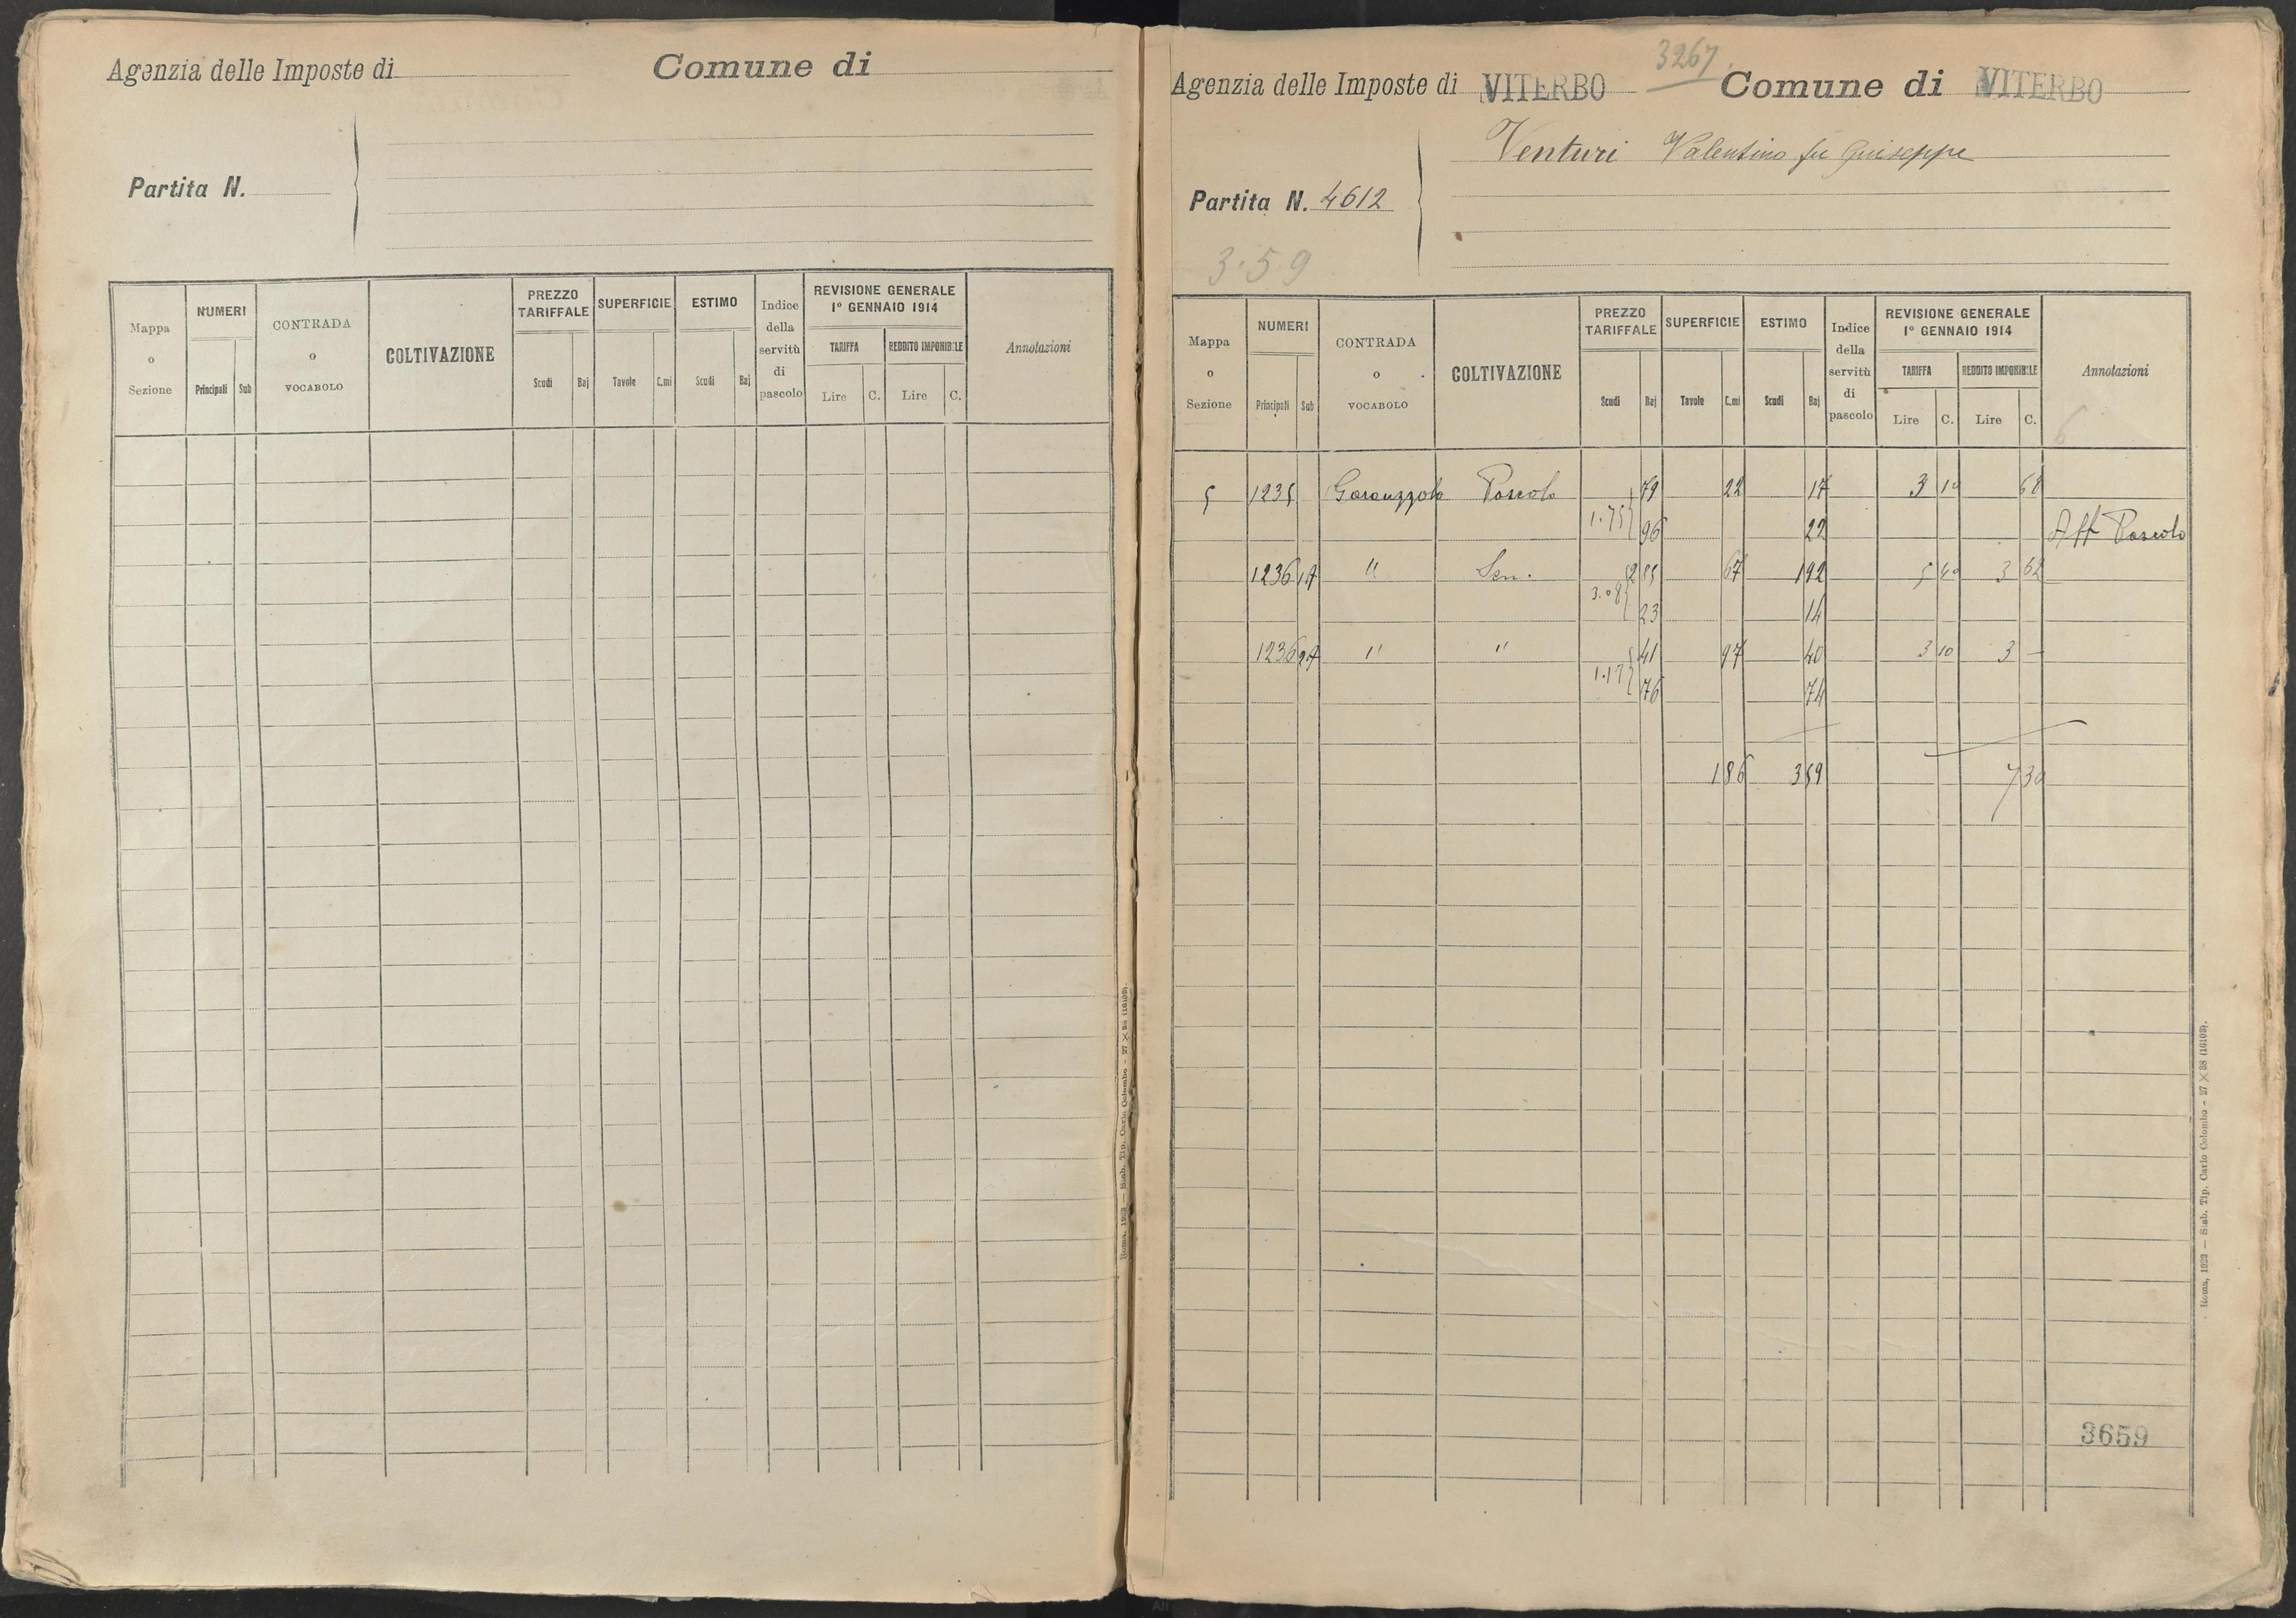 Agenzia delle Imposte di Comune di
Partita N.
Mappa o Sezione NUMERI Principali Sub CONTRADA o VOCABOLO COLTIVAZIONE PREZZO TARIFFALE Scudi Baj SUPERFICIE Tavole C.mi ESTIMO Scudi Baj Indice della servitù di pascolo REVISIONE GENERALE 1° GENNAIO 1914 TARIFFA Lire C. REDDITO IMPONIBILE Lire C. Annotazioni
Roma, 1923 — Stab. Tip. Carlo Colombo - 27 × 38 (16103).
3267
Agenzia delle Imposte di VITERBO Comune di VITERBO
Venturi Valentino fu Giuseppe
Partita N. 4612
3.59
Mappa o Sezione NUMERI Principali Sub CONTRADA o VOCABOLO COLTIVAZIONE PREZZO TARIFFALE Scudi Baj SUPERFICIE Tavole C.mi ESTIMO Scudi Baj Indice della servitù di pascolo REVISIONE GENERALE 1° GENNAIO 1914 TARIFFA Lire C. REDDITO IMPONIBILE Lire C. Annotazioni
6
5 1235 Pascolo 79 22 17 3 10 68
1.75 96 22 Aff Pascolo
1236 1A " Sem. 2 85 67 1 92 5 40 3 62
3.08 23 14
1236 2A " " 41 97 40 3 10 3 —
1.17 76 74
1 86 3 59 7 30
3659
Roma, 1923 — Stab. Tip. Carlo Colombo - 27 × 38 (16103).